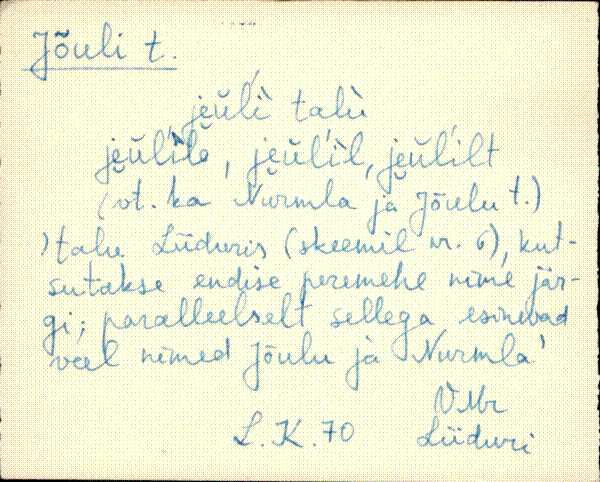 Jõuli t.
jeŭĺì talù
jeŭĺìlè, jeŭĺìl, jeŭĺilt
(vt. ka Nurmla ja Jõulu t.)
) talu Liiduris (skeemil nr. 6), kut-
sutakse endise peremehe nime jär-
gi; paralleelselt sellega esinevad
veel nimed Jõulu ja Nurmla'
VMr
L.K.70 Liiduri